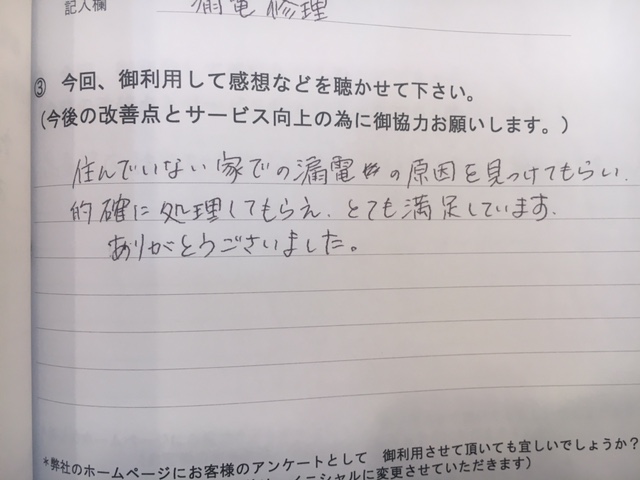 記入欄 漏電修理
③ 今回、御利用して感想などを聴かせて下さい。
(今後の改善点とサービス向上の為に御協力お願いします。)
住んでいない家での漏電の原因を見つけてもらい、
的確に処理してもらえ、とても満足しています。
ありがとうございました。
*弊社のホームページにお客様のアンケートとして 御利用させて頂いても宜しいでしょうか?
イニシャルに変更させていただきます)